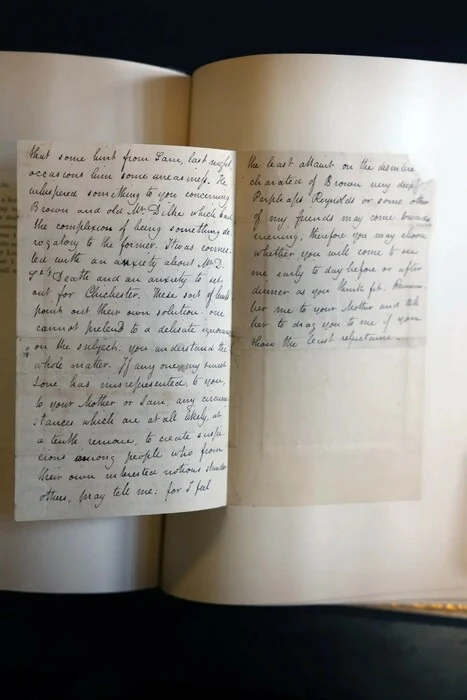 that some hint from Sam, last night
occasions him some uneasiness. He
whispered something to you concerning
Brown and old Mr. Dilke which had
the complexion of being something de
rogatory to the former. It was connec
ted with an anxiety about Mr. D.
Sr's death and an anxiety to set
out for Chichester. These sort of hints
point out their own solution: one
cannot pretend to a delicate ignorance
on the subject: you understand the
whole matter. If any one, my sweet
Love has misrepresented, to you,
to your Mother or Sam, any circum
stances which are at all likely, at
a tenth remove, to create suspi
cions among people who from
their own interested notions slander
others, pray tell me: for I feel
the least attaint on the disinteres
character of Brown very deeply
Perphaps Reynolds or some other
of my friends may come towards
evening, therefore you may choose
whether you will come to see
me early to day before or after
dinner as you think fit. Remem
ber me to your Mother and tell
her to drag you to me if you
show the least reluctance